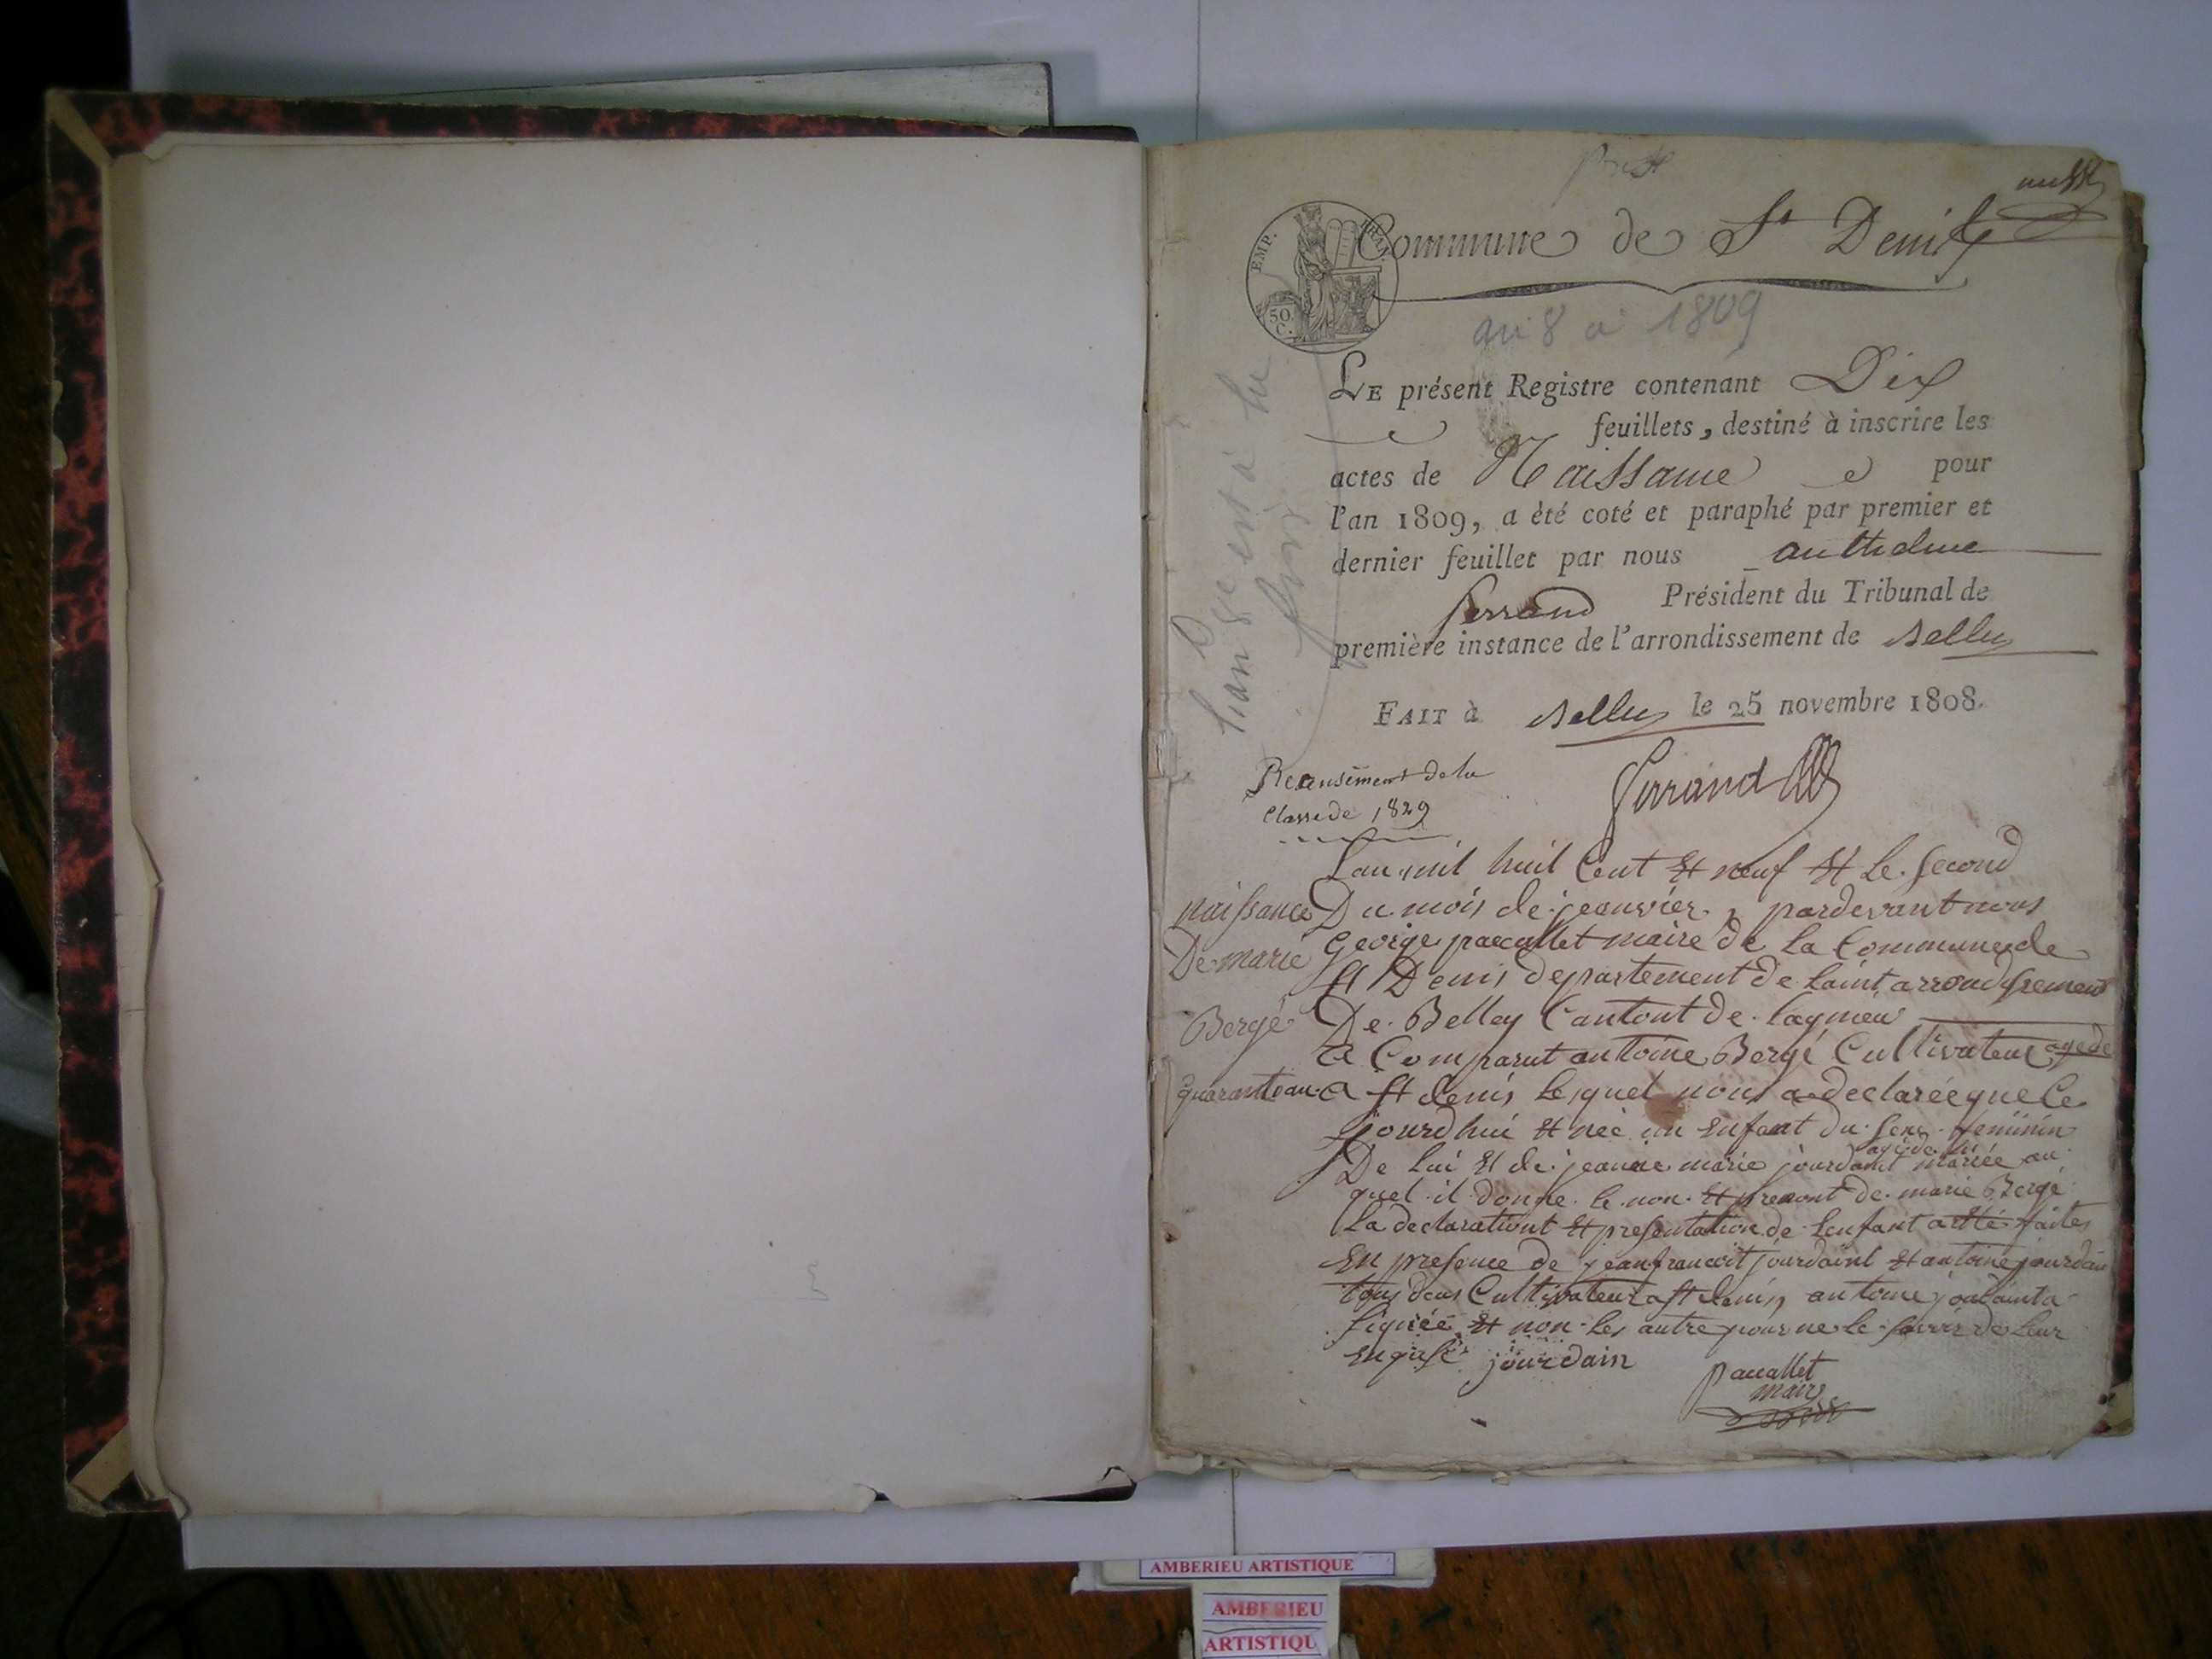 Commune de St Denis
EMP. FRAN.
50.
C.
an 8 a 1809
LE présent Registre contenant Dix
feuillets, destiné à inscrire les
actes de Naissance pour
l'an 1809, a été coté et paraphé par premier et
dernier feuillet par nous anthelme
ferrand Président du Tribunal de
première instance de l'arrondissement de Belley
FAIT à Belley le 25 novembre 1808.
Recensement de la
Classe de 1829
ferrand
naissance
De marie
Bergé
Lan mil huit Cent et neuf et le second
Du mois de jeanvier, pardevant nous
George paccallet maire de la Commune de
st Denis departement de Laint arrondissement
De Belley Cantont de Lagnieu
a Comparut antoine Bergé Cultivateur age de
quarante an a st denis lequel nous a declareé que ce
jourdhui et neé un enfant du sexe feminin
De lui et de jeanne marie jourdaint mariée au
quel il donne le non et prenont de marie Bergé
La declarationt et presentation de lenfant a été faites
En presence de jeanfrancoit jourdaint et antoine jourdain
tous deus Cultivateur a st denis antoine jourdaint a
signéé et non les autre pour ne le savoir de leur
enquise jourdain
paccallet
maire
AMBERIEU ARTISTIQUE
AMBERIEU
ARTISTIQU